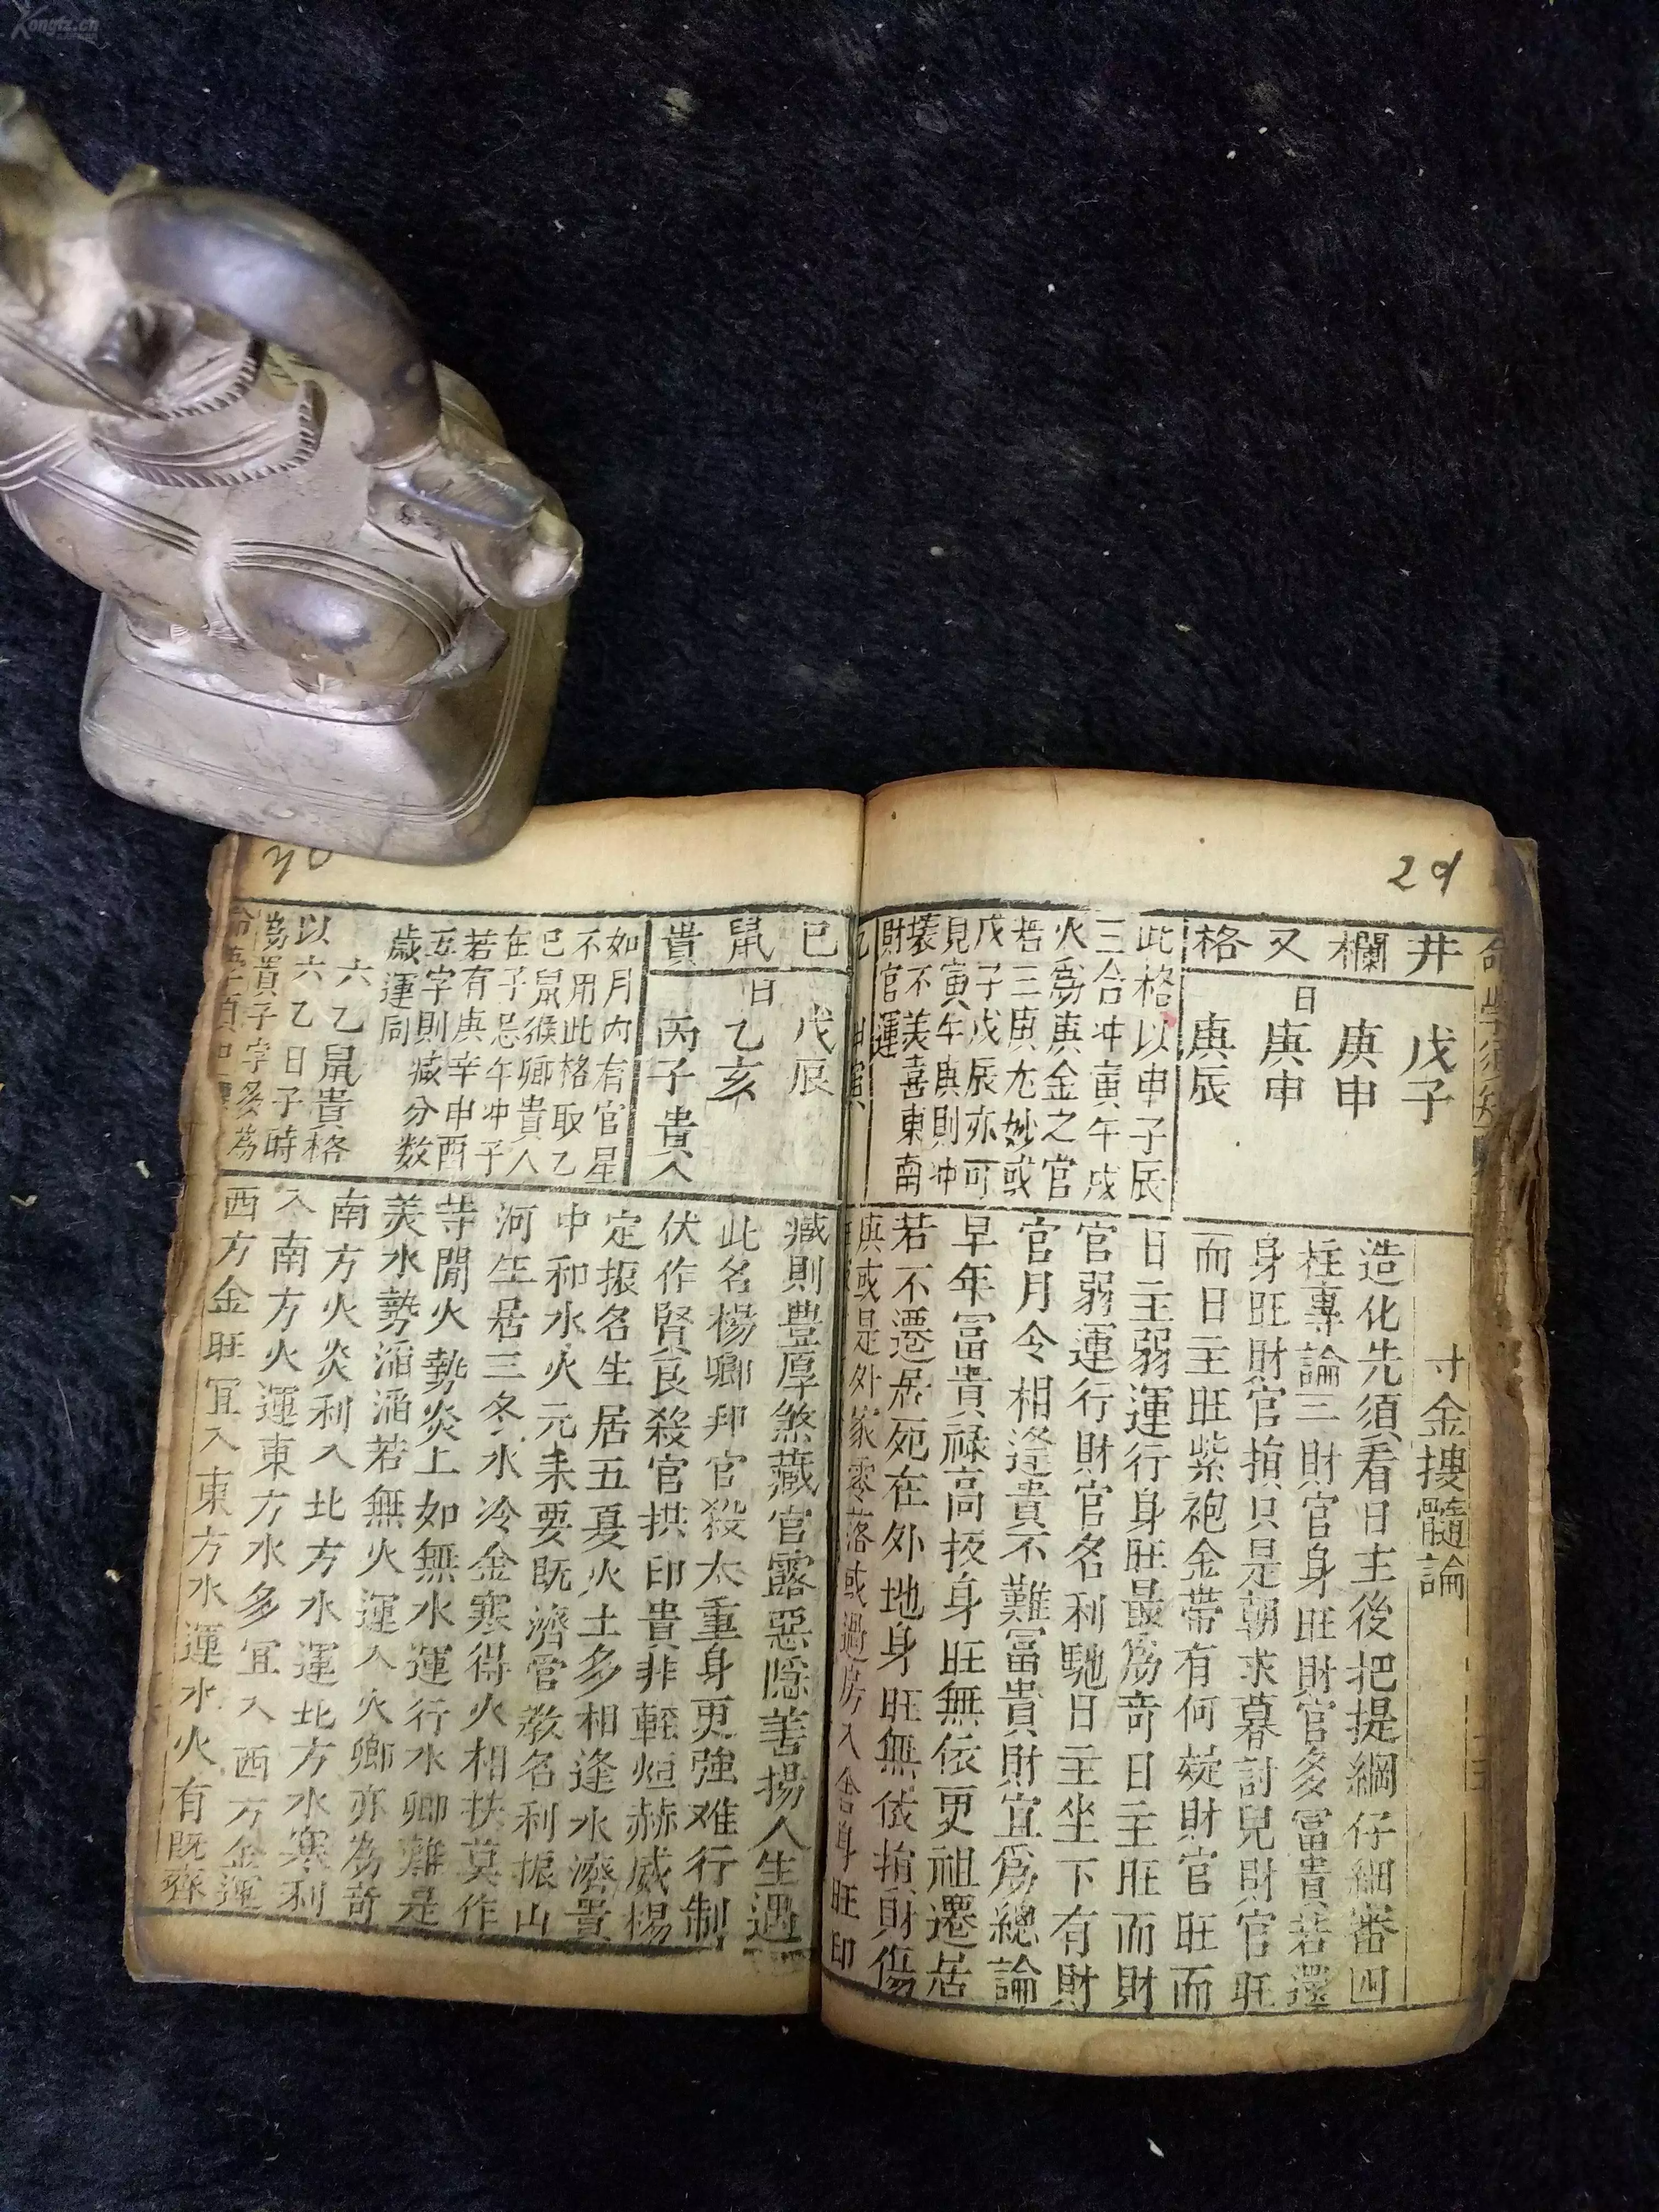 Kongfz.cn
29
井欄又格
戊子
庚申
日庚申
庚辰
此格以申子辰
三合冲寅午戌
火爲庚金之官
若三庚尤妙或
戊子戊辰亦可
見寅午庚則冲
壞不美喜東南
財官運
寸金搜髓論
造化先須看日主後把提綱仔細審四
柱專論三財官身旺財官多冨貴若還
身旺財官損只是朝求暮討兒財官旺
而日主旺紫袍金帶有何疑財官旺而
日主弱運行身旺最爲奇日主旺而財
官弱運行財官名利馳日主坐下有財
官月令相逢貴不難冨貴財宜爲總論
早年冨貴祿高抜身旺無依更祖遷居
若不遷居死在外地身旺無依損財傷
與或是外家零落或過房入舍身旺印
巳鼠貴
戊辰
日乙亥
丙子貴人
如月内有官星
不用此格取乙
巳鼠猴卿貴人
在子忌午冲子
若有庚辛申酉
五字則减分数
歳運同
六乙鼠貴格
以六乙日子時
為貴子字多為
臧則豊厚煞藏官露惡隠善揚人生遇
此名楊卿邦官殺太重身更強难行制
伏作賢良殺官拱印貴非輕烜赫威楊
定振名生居五夏火土多相逢水濟貴
中和水火元来要既濟管教名利振山
河生居三冬水冷金寒得火相扶莫作
等閒火勢炎上如無水運行水卿難是
美水勢滔滔若無火運入火卿亦為奇
南方火炎利入北方水運北方水寒利
入南方火運東方水多宜入西方金運
西方金旺宜入東方水運水火有既齊